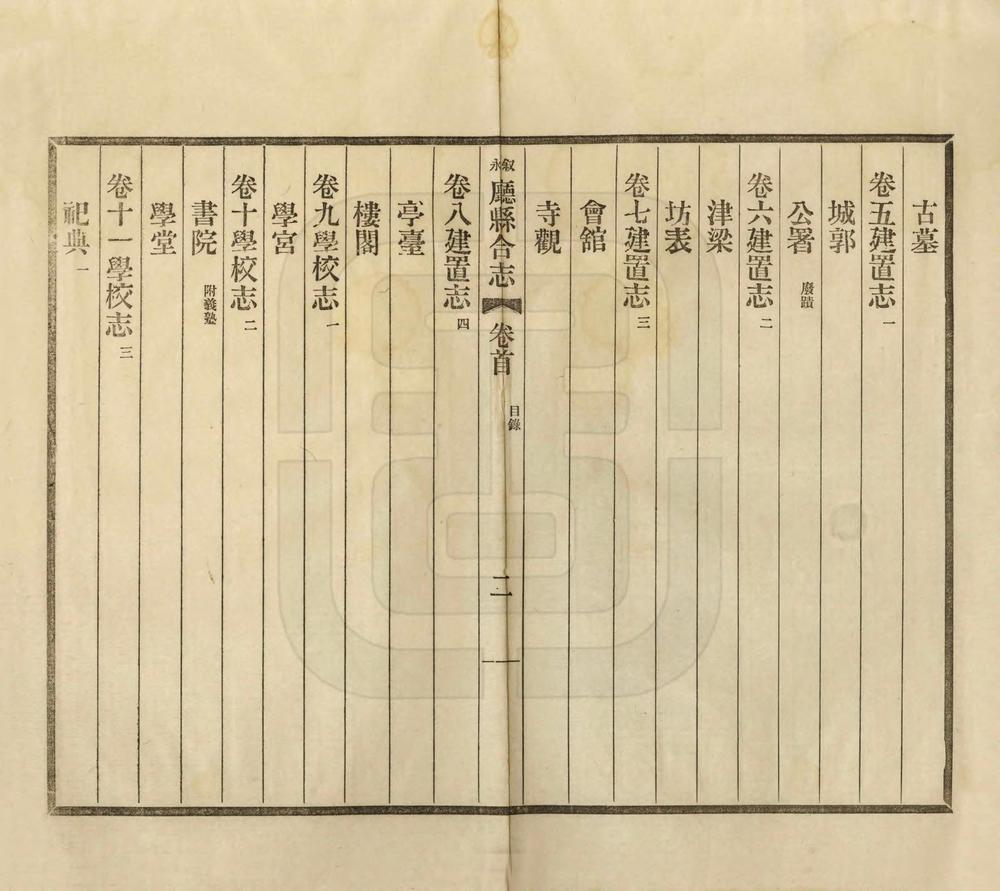 古墓
卷五建置志一
城郭
公署 廢蹟
卷六建置志二
津梁
坊表
卷七建置志三
會館
寺觀
叙永廳縣合志 卷首 目錄 二
卷八建置志四
亭臺
樓閣
卷九學校志一
學宮
卷十學校志二
書院 附義塾
學堂
卷十一學校志三
祀典一